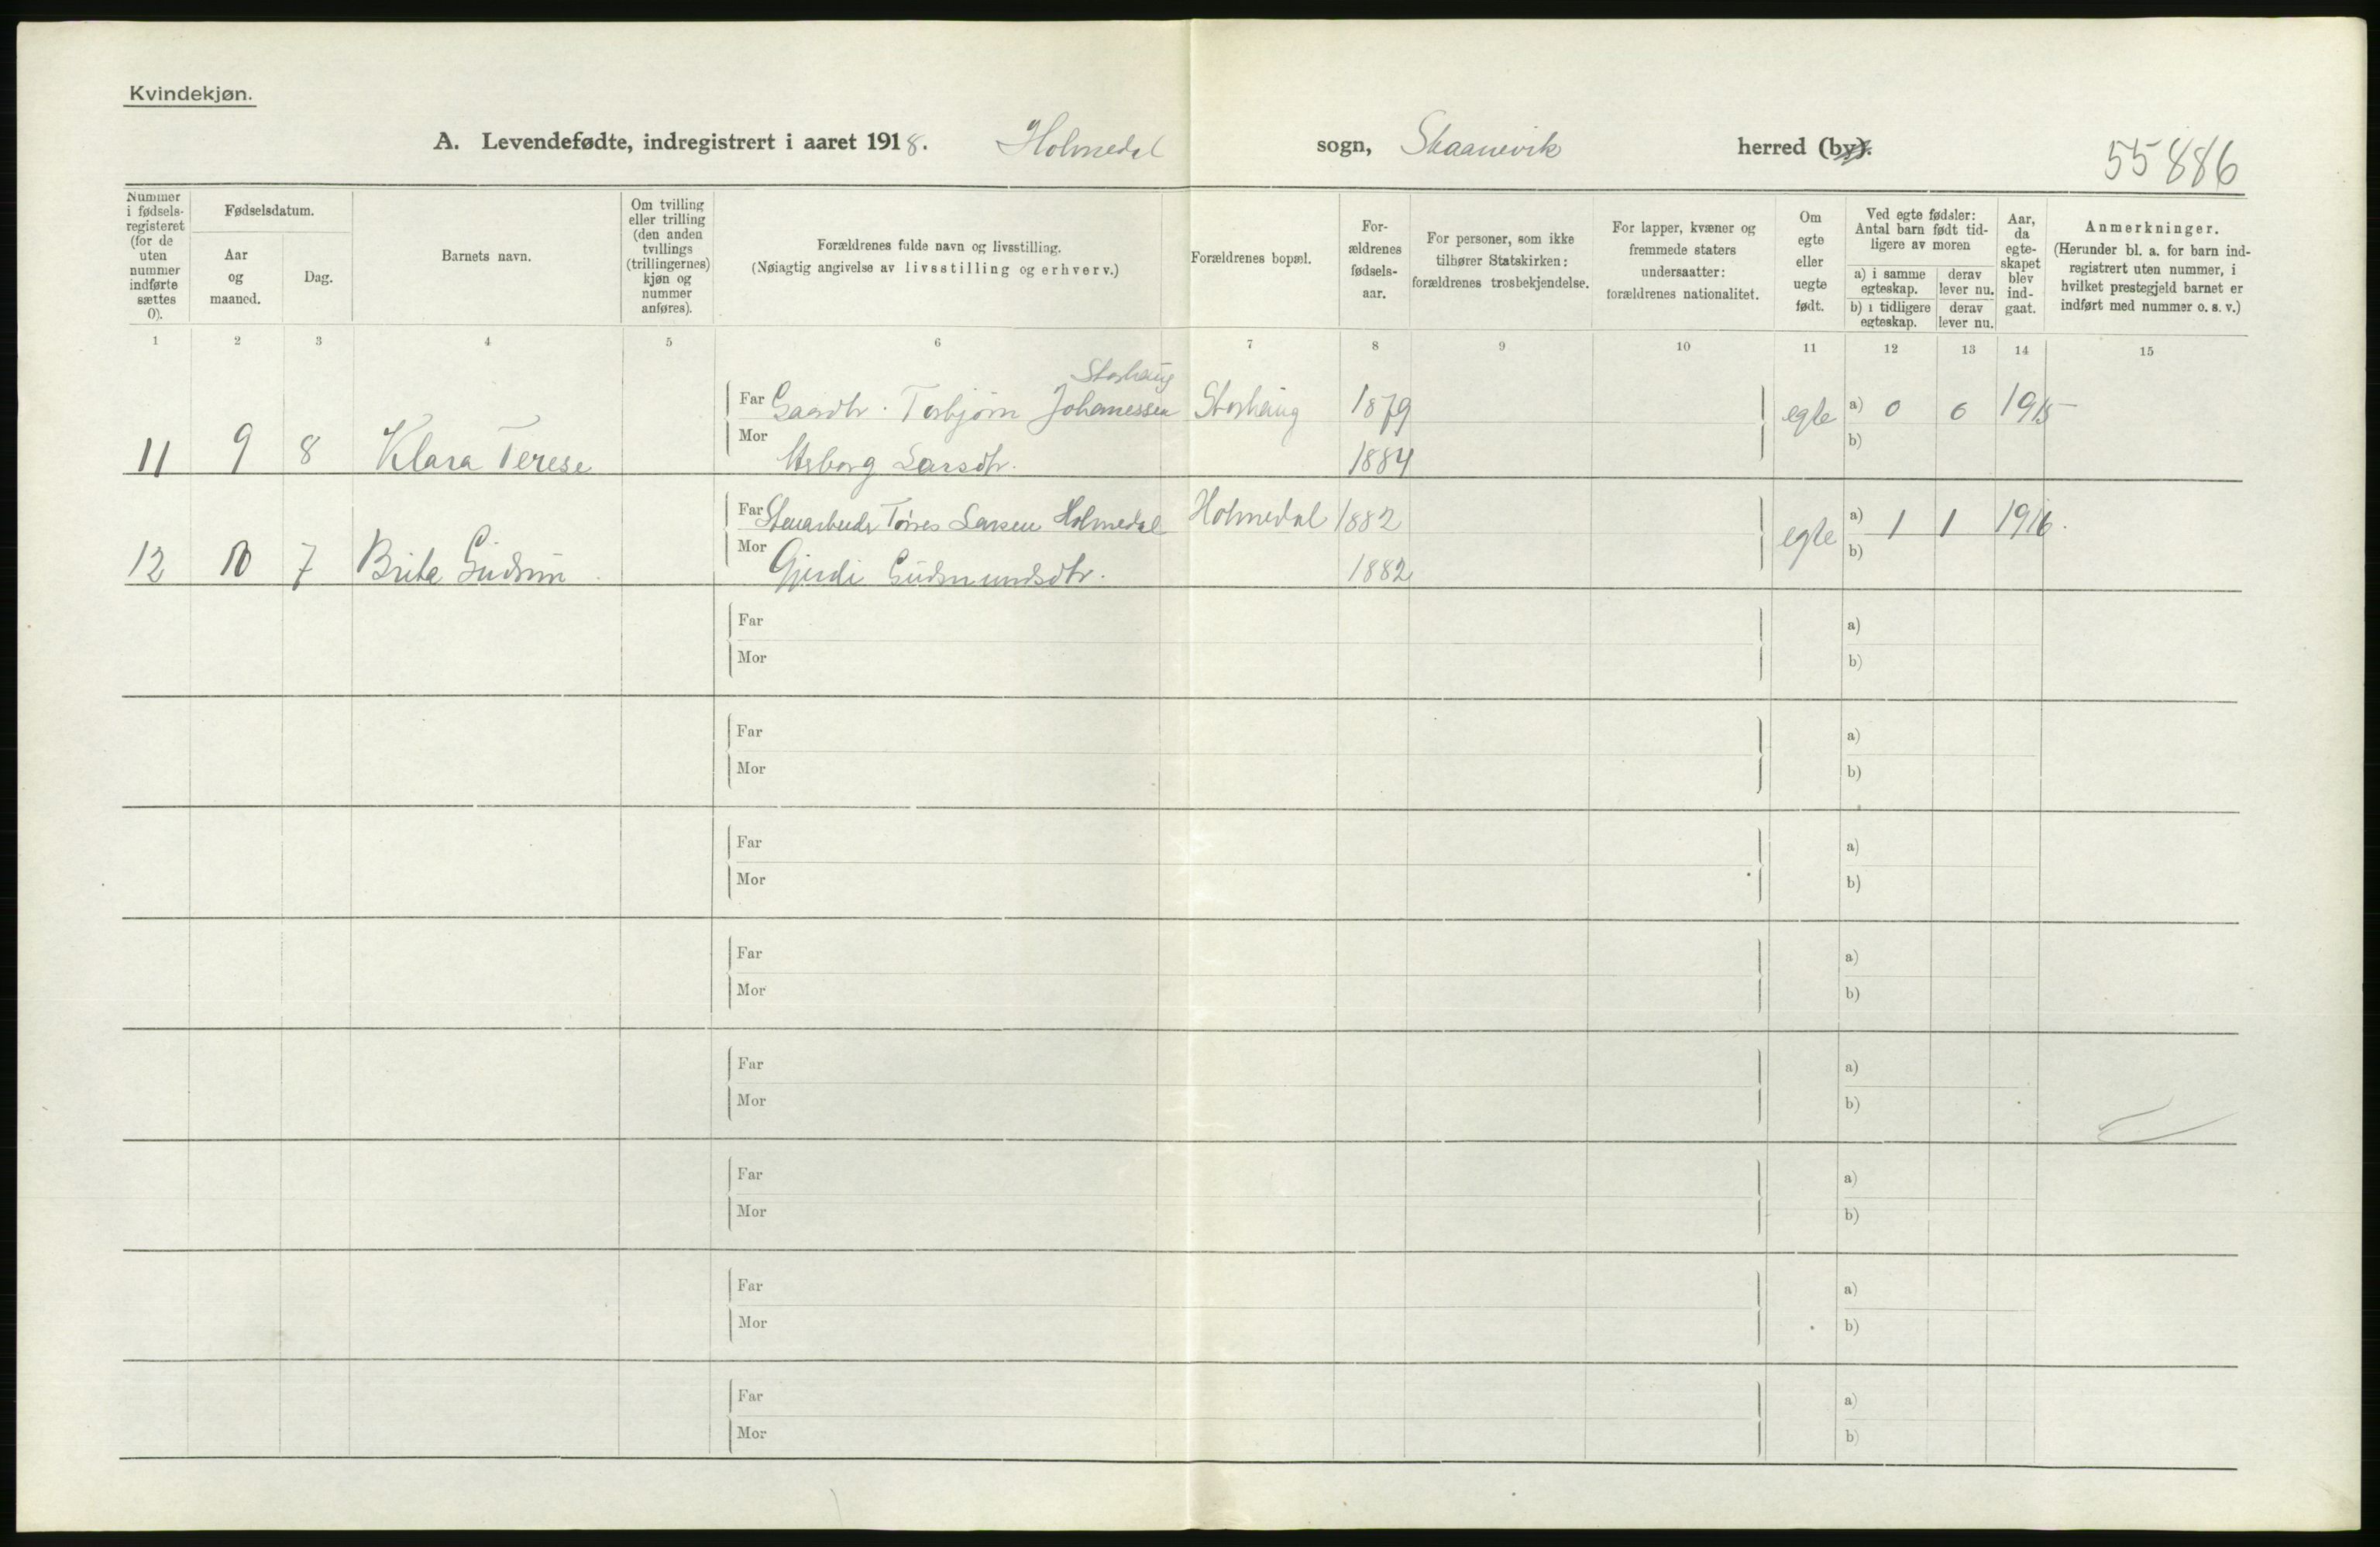 Kvindekjøn.
A. Levendefødte, indregistrert i aaret 1918. Holmedal sogn, Skaanevik herred (by).
55886
Nummer i fødsels-registeret (for de uten nummer indførte sættes 0).
Fødselsdatum.
Aar og maaned.
Dag.
Barnets navn.
Om tvilling eller trilling (den anden tvillings (trillingernes) kjøn og nummer anføres).
Forældrenes fulde navn og livsstilling.
(Nøiagtig angivelse av livsstilling og erhverv.)
Forældrenes bopæl.
For-ældrenes fødsels-aar.
For personer, som ikke tilhører Statskirken: forældrenes trosbekjendelse.
For lapper, kvæner og fremmede staters undersaatter: forældrenes nationalitet.
Om egte eller uegte født.
Ved egte fødsler: Antal barn født tid-ligere av moren
a) i samme egteskap.
derav lever nu.
b) i tidligere egteskap.
derav lever nu.
Aar, da egte-skapet blev ind-gaat.
Anmerkninger.
(Herunder bl. a. for barn ind-registrert uten nummer, i hvilket prestegjeld barnet er indført med nummer o. s. v.)
1 2 3 4 5 6 7 8 9 10 11 12 13 14 15
Storhaug
Far Gaardbr. Torbjørn Johanessen Storhaug 1879 egte a) 0 0 1915
Mor b)
11 9 8 Klara Terese Larsdtr. 1884
Far Stenarbeider Tørres Larsen Holmedal Holmedal 1882 egte a) 1 1 1916.
Mor b)
12 10 7 Brita Gudrun Gjerdi Gudmundsdtr. 1882
Far a)
Mor b)
Far a)
Mor b)
Far a)
Mor b)
Far a)
Mor b)
Far a)
Mor b)
Far a)
Mor b)
Far a)
Mor b)
Far a)
Mor b)